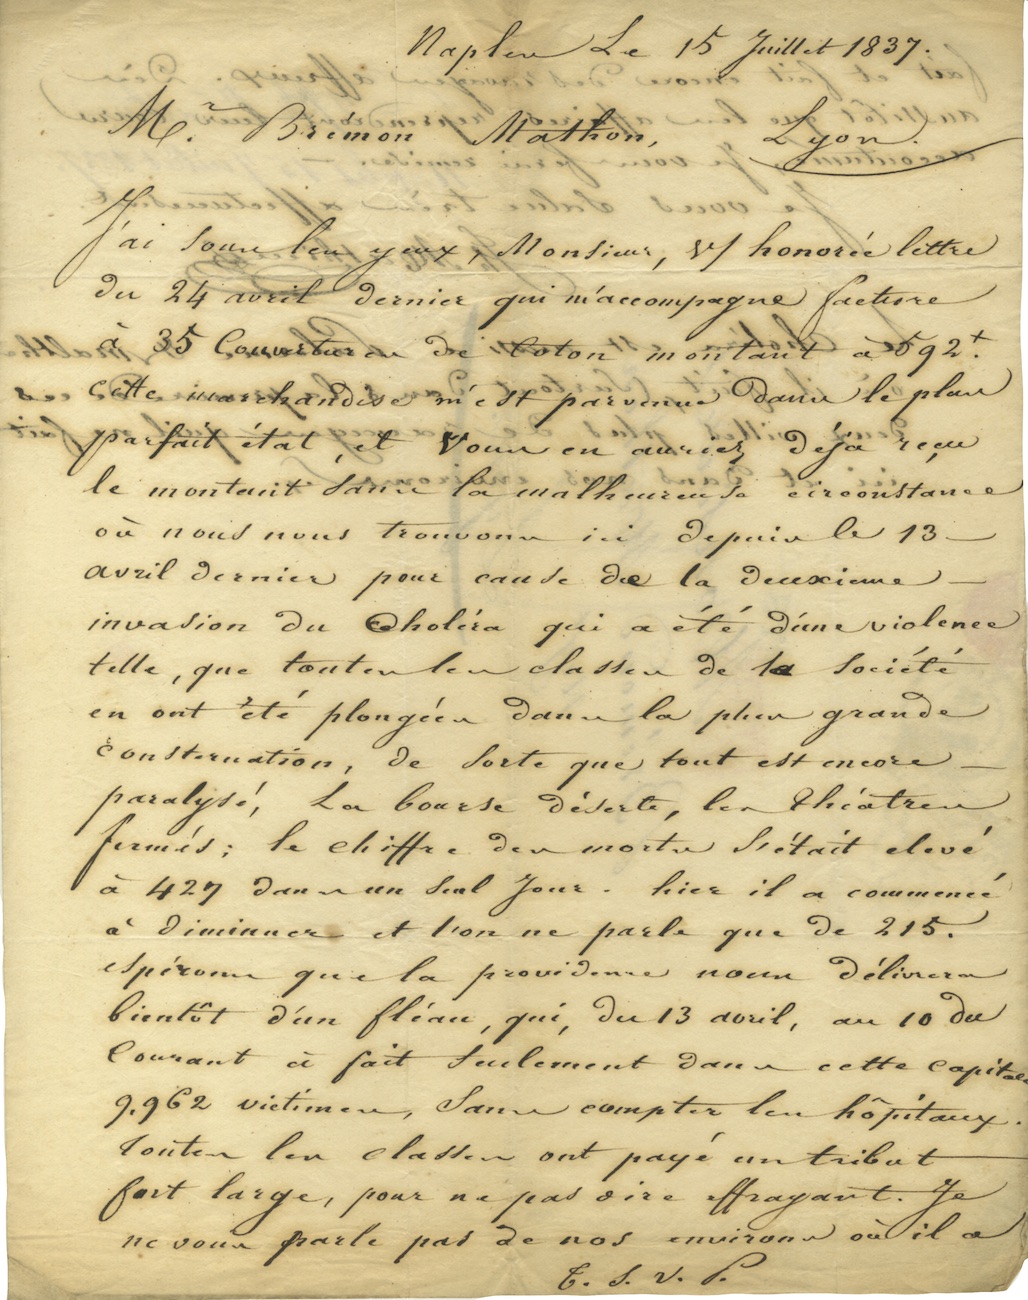 Naples Le 15 Juillet 1837.
Mr. Brémon Mathon, Lyon.
J'ai sous les yeux, Monsieur, V/ honorée lettre
du 24 avril dernier qui m'accompagne facture
à 35 Couvertures de Coton montant à 592
cette marchandise m'est parvenue dans le plus
parfait état, et Vous en auriez déjà reçu
le montant sans la malheureuse circonstance
où nous nous trouvons ici depuis le 13
avril dernier pour cause de la deuxieme
invasion du Choléra qui a été d'une violence
telle, que toutes les classes de la société
en ont été plongées dans la plus grande
consternation, de sorte que tout est encore
paralysé, La bourse déserte, les théatres
fermés; le chiffre des morts s'était elevé
à 427 dans un seul Jour. hier il a commencé
à diminuer et l'on ne parle que de 215.
espérons que la providence nous délivrera
bientôt d'un fléau, qui, du 13 avril, au 10 du
Courant à fait seulement dans cette capitale
9.962 victimes, Sans compter les hôpitaux.
Toutes les classes ont payé un tribut
fort large, pour ne pas dire effrayant. Je
ne vous parle pas de nos environs où il a
T. S. V. P.